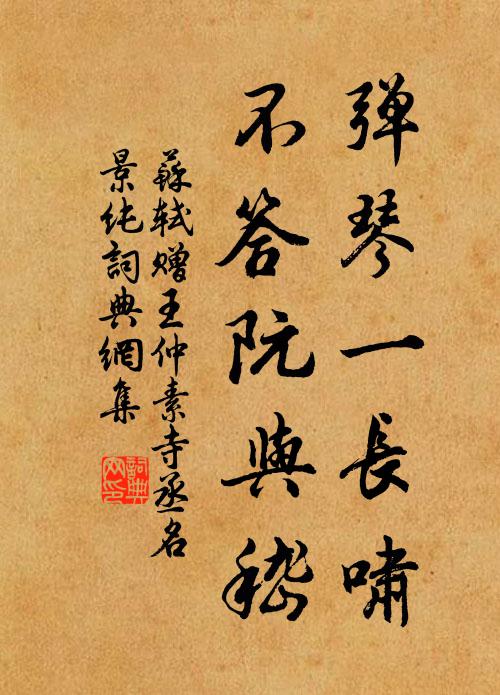 弹琴一長嘯
不答阮與嵇
蘇軾贈王仲素寺丞名
景纯詞典網集
詞典网印